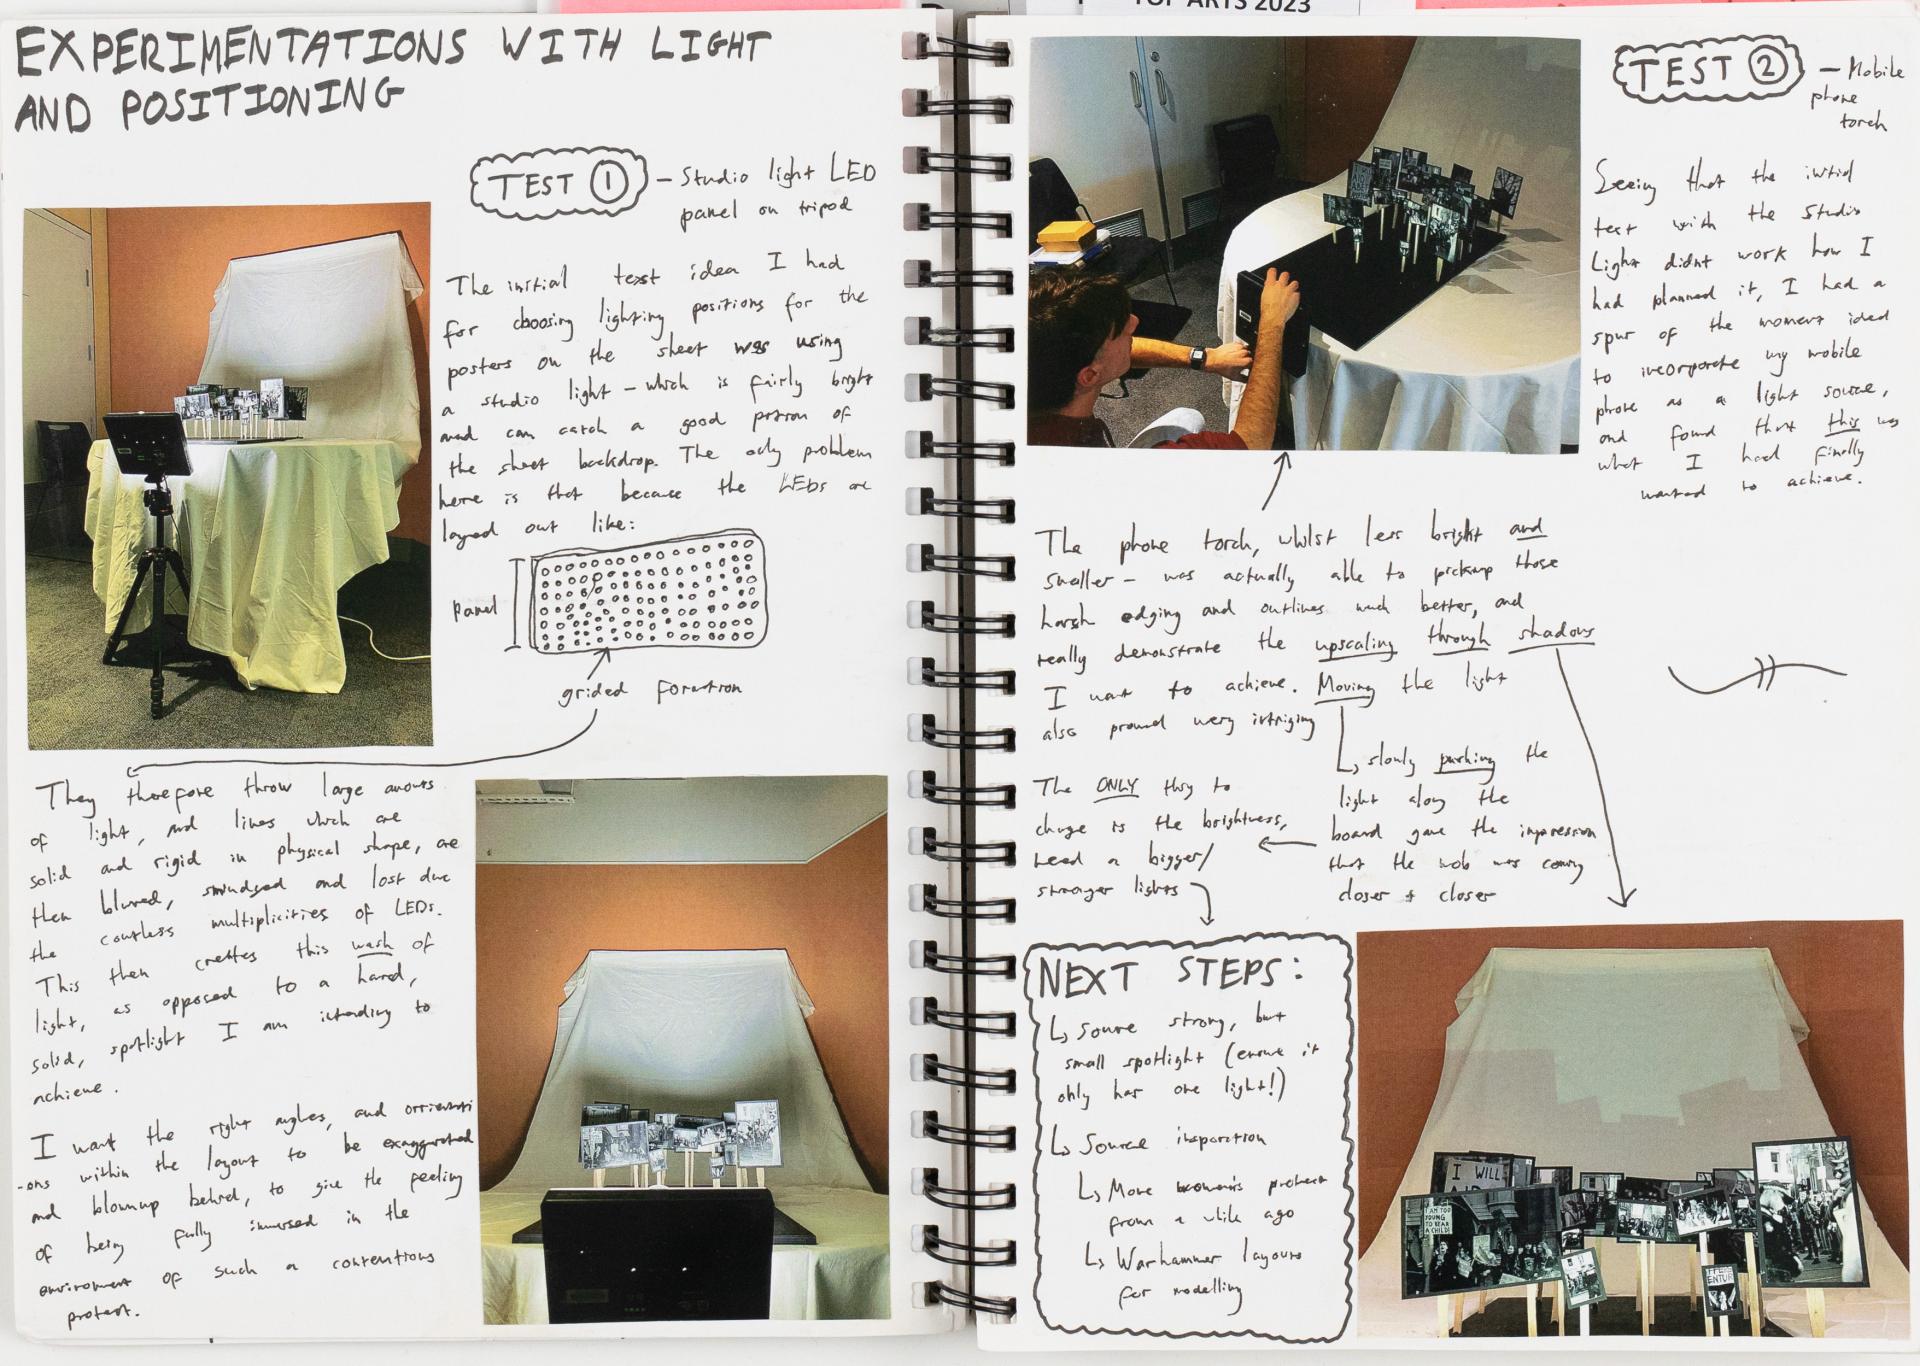 EXPERIMENTATIONS WITH LIGHT
AND POSITIONING
TEST 1 - Studio light LED
panel on tripod
The initial test idea I had
for choosing lighting positions for the
posters on the sheet was using
a studio light - which is fairly bright
and can catch a good portion of
the sheet backdrop. The only problem
here is that because the LEDs are
layed out like:
panel
grided formation
They therefore throw large amouts
of light, and lines which are
solid and rigid in physical shape, are
then blurred, smudged and lost due
the countless multiplicities of LEDs.
This then creates this wash of
light, as opposed to a hard,
solid, spotlight I am intending to
achieve.
I want the right angles, and orrientati
-ons within the layout to be exaggerated
and blownup behind, to give the feeling
of being fully immersed in the
enviroment of such a contentious
protest.
TOP ARTS 2023
TEST 2 - Mobile
phone
torch
Seeing that the initial
test with the studio
Light didnt work how I
had planned it, I had a
spur of the moment idea
to incorporate my mobile
phone as a light source,
and found that this was
what I had finally
wanted to achieve.
The phone torch, whilst less bright and
smaller - was actually able to pickup those
harsh edging and outlines much better, and
really demonstrate the upscaling through shadows
I want to achieve. Moving the light
also proved very intriging
↳ slowly pushing the
light along the
board gave the impression
that the mob was coming
closer + closer
The ONLY thing to
change is the brightness,
need a bigger/
stronger lights
NEXT STEPS:
↳ Source strong, but
small spotlight (ensure it
only has one light!)
↳ Source insparation
↳ More women's protest
from a while ago
↳ Warhammer layouts
for modelling
I WILL
I AM TOO
YOUNG
TO BEAR
A CHILD!